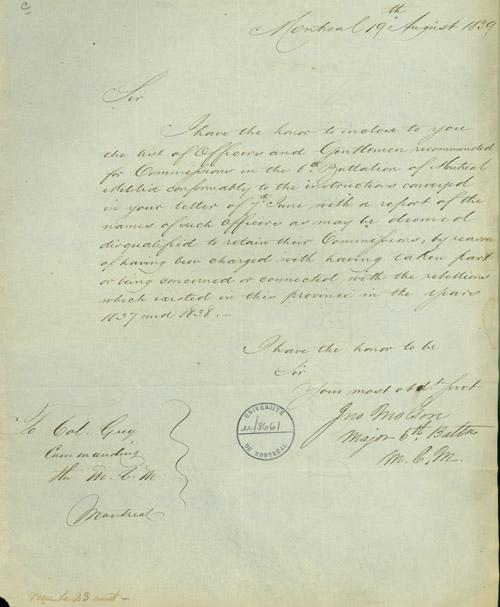 Montreal 19th August 1839
Sir
I have the honor to inclose to you
the list of Officers and Gentlemen recommended
for Commissions in the 6th Battalion of Montreal
Militia conformably to the instructions conveyed
in your letter of 7th June with a report of the
names of such Officers as may be deemed
disqualified to retain their Commissions, by reason
of having been charged with having taken part
or being concerned or connected with the rebellions
which existed in this province in the years
1837 and 1838. —
I have the honor to be
Sir
Your most obdt. Servt
Jno Molson
Major 6th Battn
M. C. M.
To Col. Guy
Commanding
the M. C. M
Montreal
UNIVERSITÉ
u/8661
DE MONTRÉAL
reçu le 23 aout —